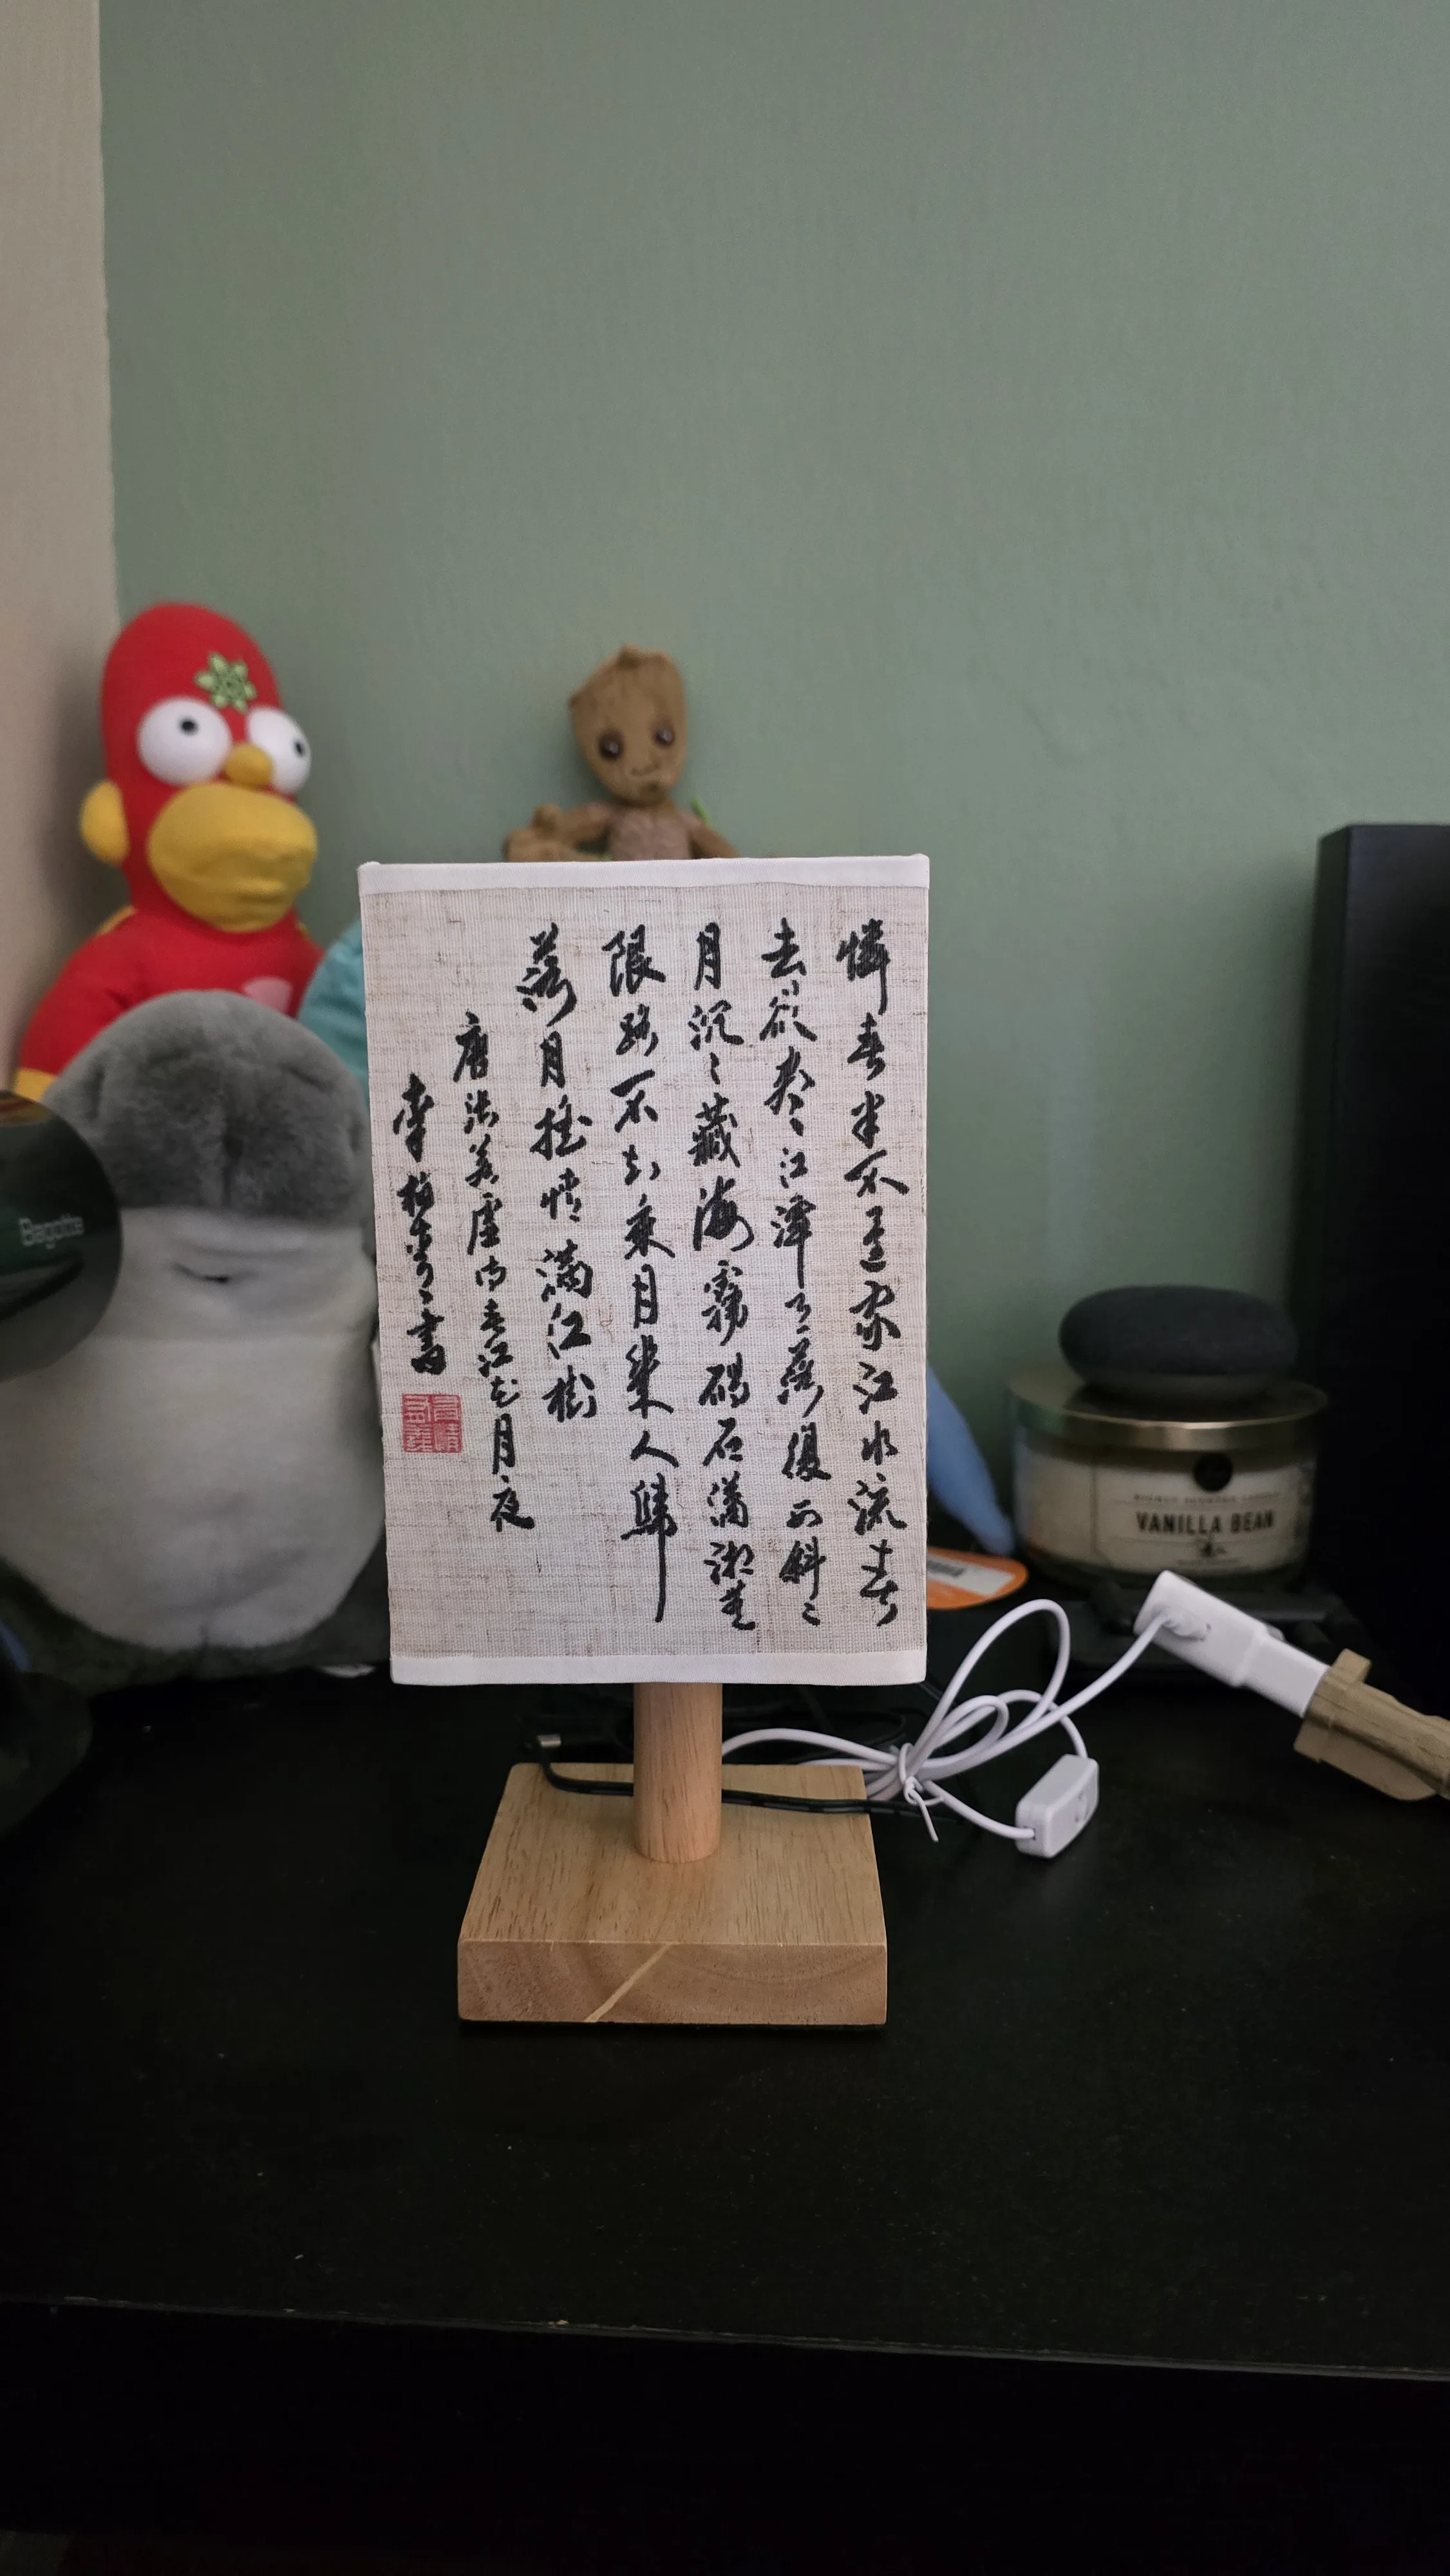 憐春半不還家江水流春
去欲尽江潭落復西斜〻
月沉〻藏海霧碣石瀟湘無
限路不知乘月幾人歸
落月搖情滿江樹
唐張若虛詩春江花月夜
李書
Bagotte
VANILLA BEAN